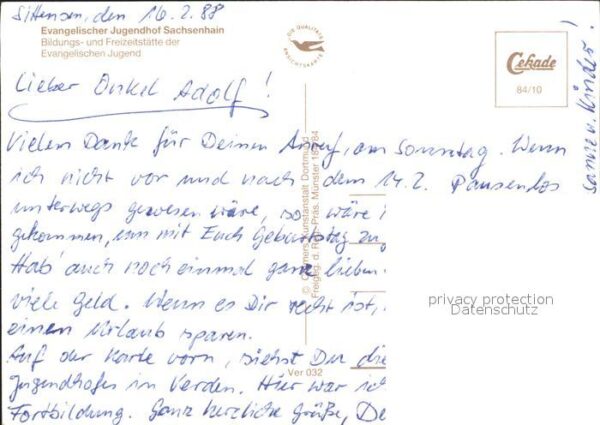 Sittensen, den 16.2.88
Evangelischer Jugendhof Sachsenhain
Bildungs- und Freizeitstätte der
Evangelischen Jugend
DIE QUALITÄTS
ANSICHTSKARTE
Cekade
84/10
Lieber Onkel Adolf!
Vielen Dank für Deinen Anruf, am Sonntag. Wenn
ich nicht vor und nach dem 14.2. Pausenlos
unterwegs gewesen wäre, so wäre i
gekommen, um mit Euch Geburtstag zu
Hab' auch noch einmal ganz lieben
viele Geld. Wenn es Dir recht ist,
einen Urlaub sparen.
Auf der Karte vorn, siehst Du die
Jugendhofes in Verden. Hier war ich
Fortbildung. Ganz herzliche Grüße, De
Kinder!
© Cramers Kunstanstalt Dortmund
Freigeg. d. Reg. Präs. Münster
Ver 032
privacy protection
Datenschutz